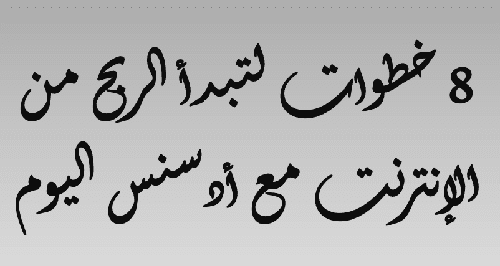 8 خطوات لتبدأ الربح من
الإنترنت مع أدسنس اليوم